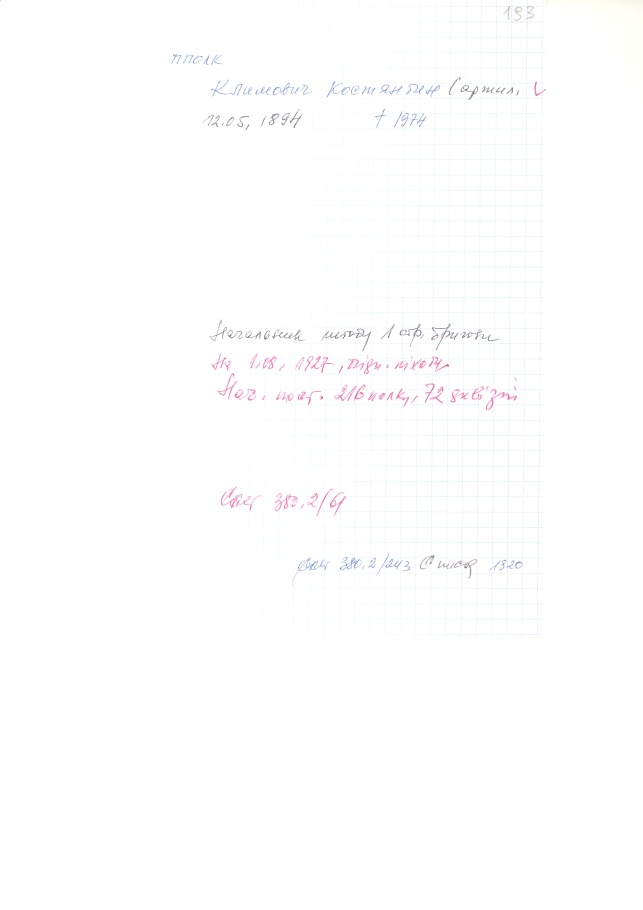 193
ППОЛК
Климович Костянтин (артил.
12.05, 1894 † 1974
Начальник штабу 1 стр. бригади
На 1.08, 1927, підп. піхоти
Нач. 216 полку, 72 дивізії
380.2/61
380.2/243 Список 1920